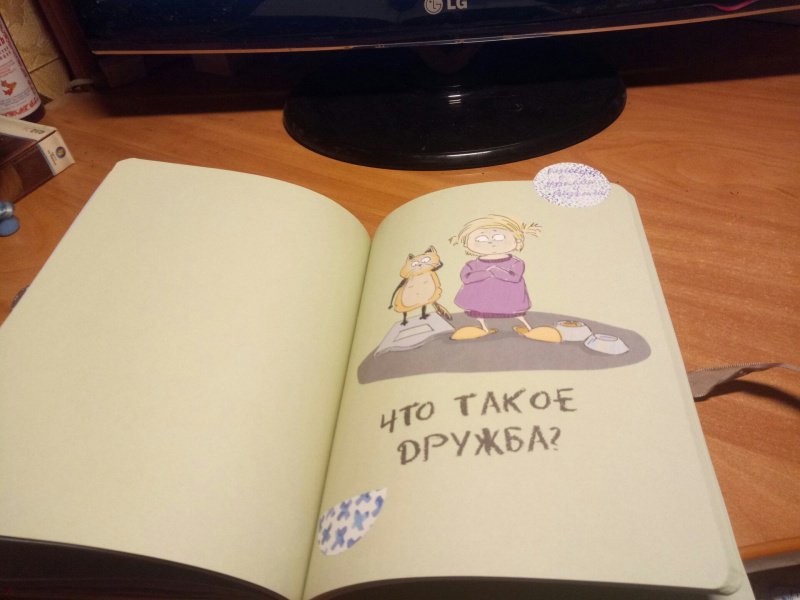 LG
ЧТО ТАКОЕ
ДРУЖБА?